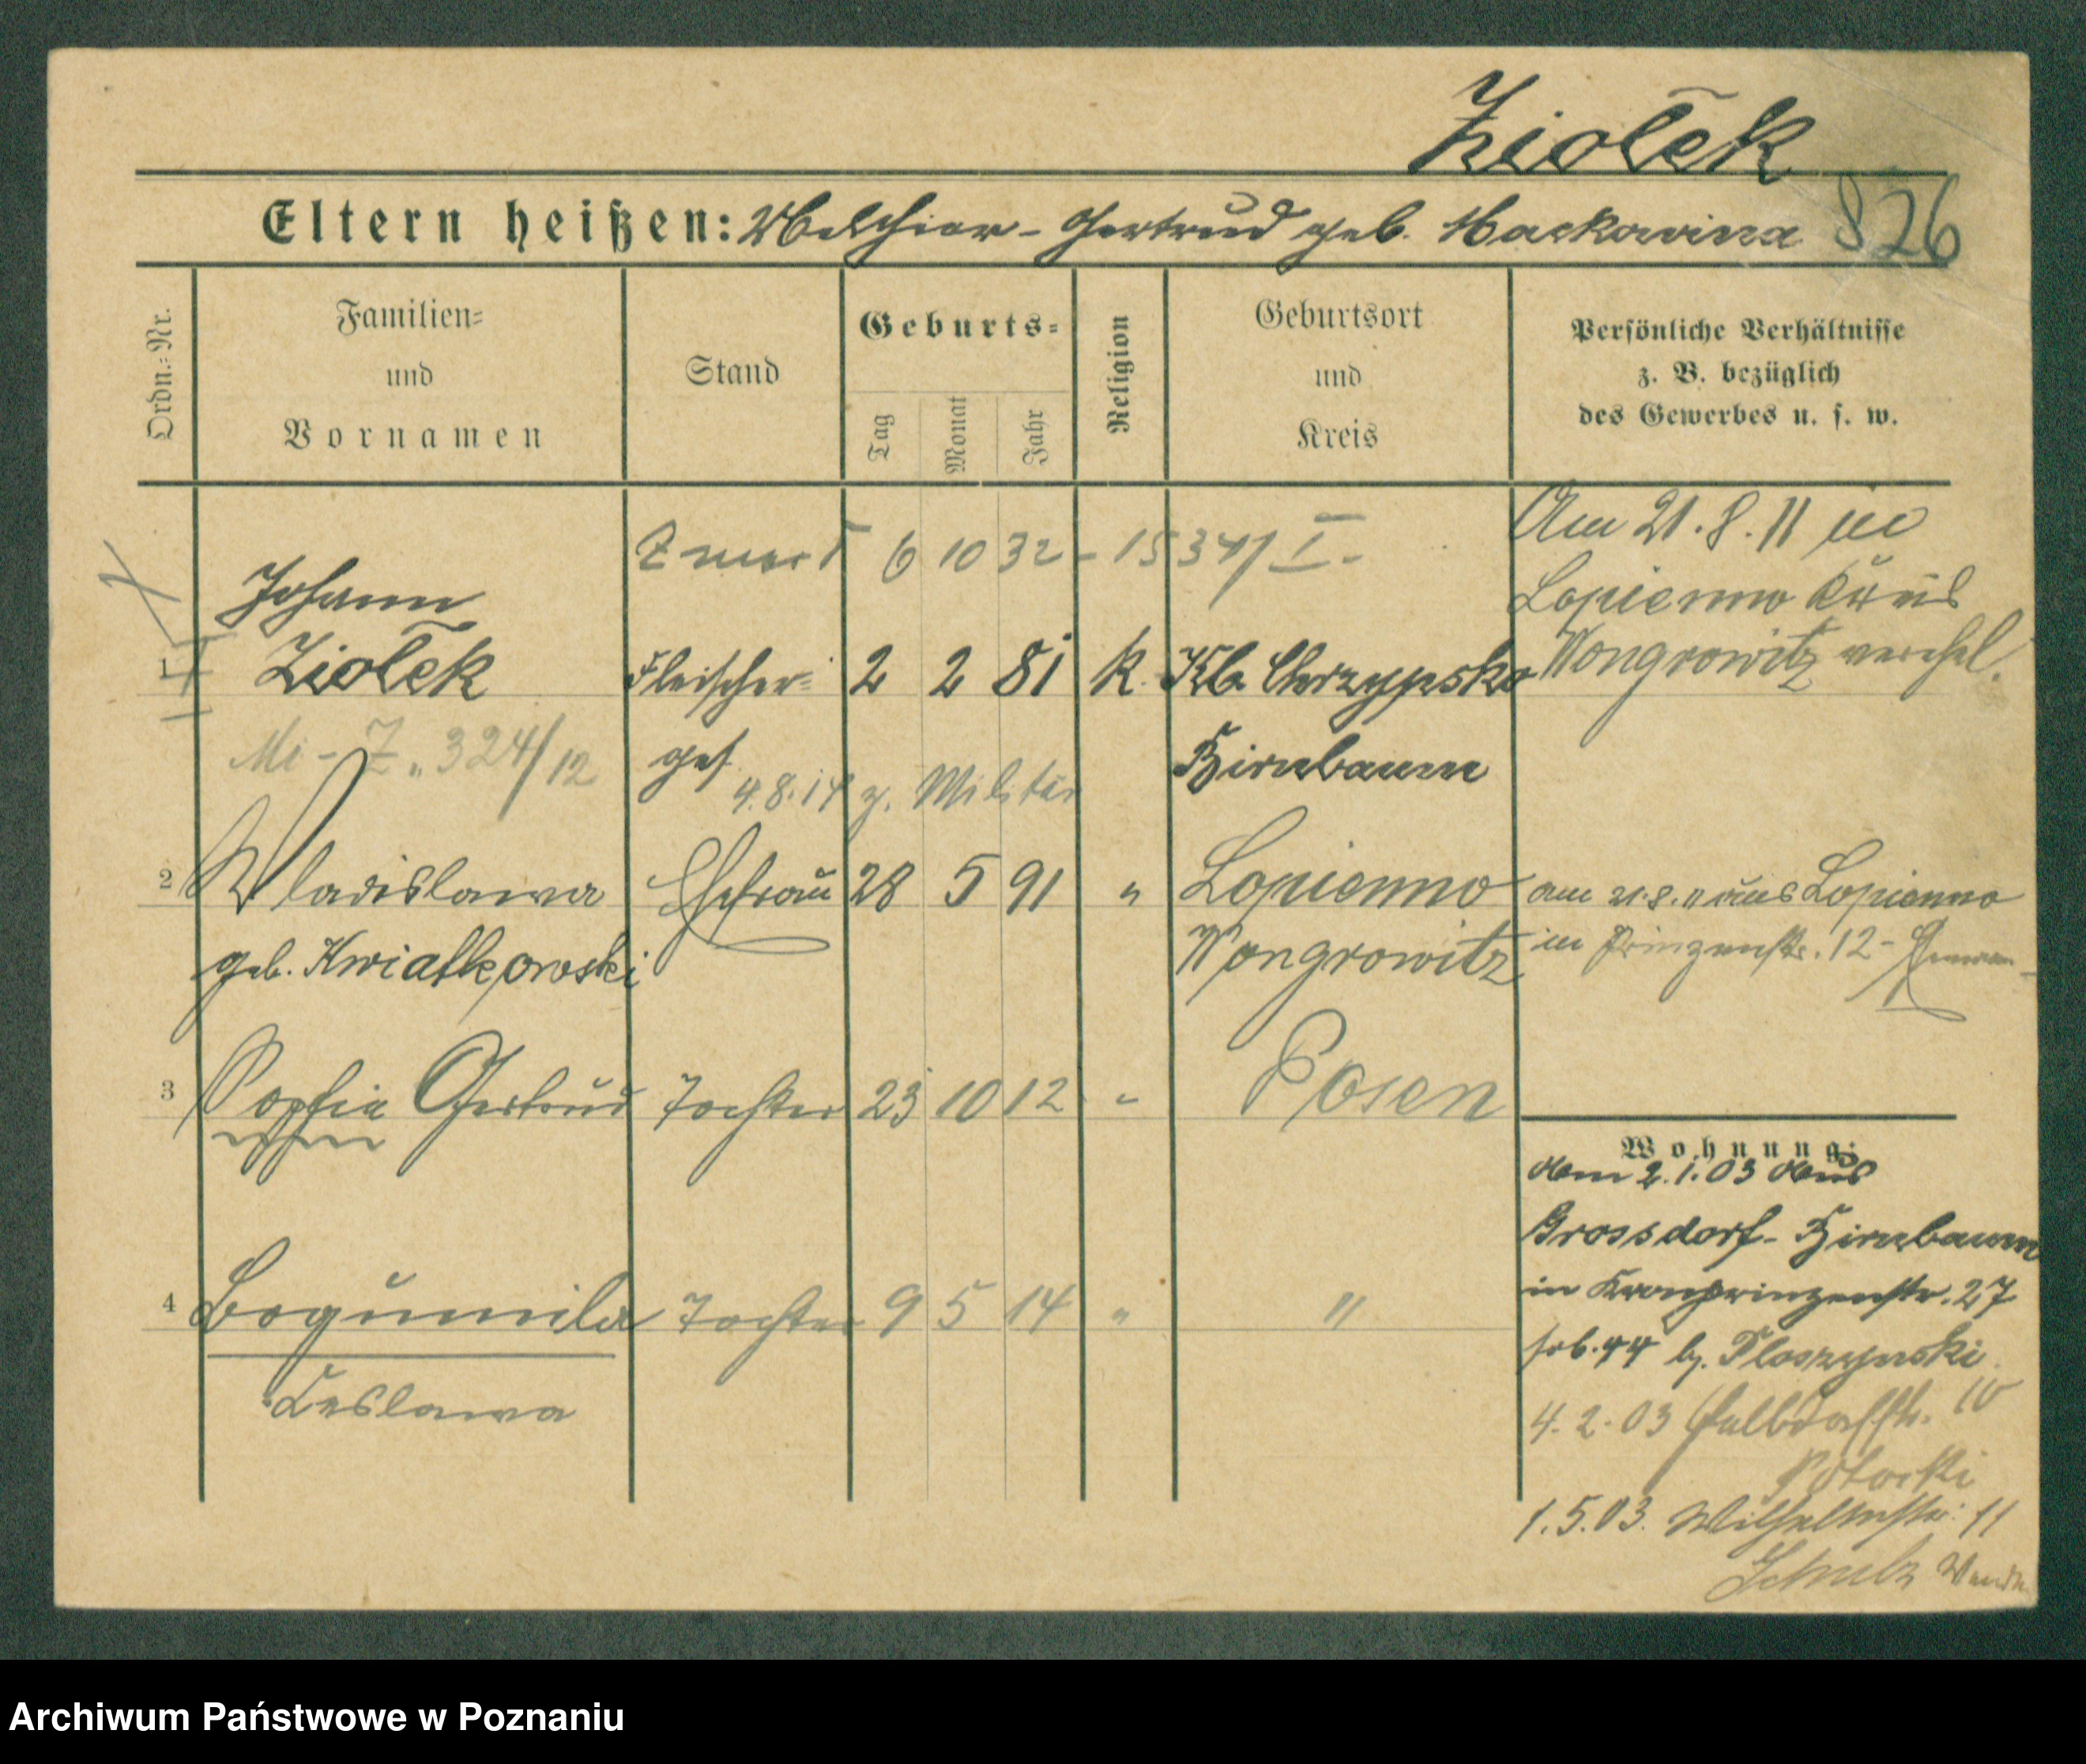 Ziołek
Eltern heißen: Melchior - Gertrud geb. Maćkowina 826
Ordn.-Nr.
Familien-
und
Vornamen
Stand
Geburts-
Tag
Monat
Jahr
Religion
Geburtsort
und
Kreis
Persönliche Verhältnisse
z. B. bezüglich
des Gewerbes u. s. w.
Zmarł 6 10 32 - 1534/I.
Am 21.8.11 in
Lopienno Kreis
Wongrowitz verehel.
Johann
Ziołek
Fleischer-
ges
2 2 81 k. Kl. Chrzypsko
Birnbaum
Mi - Z. 324/12
4.8.14 z. Militär
2 Wladislawa Ehefrau 28 5 91 " Lopienno
geb. Kwiatkowski
Wongrowitz
am 21.8.11 aus Lopienno
in Prinzenstr. 12 -
3 Sophie Gertrud Tochter 23 10 12 " Posen
4 Bogumila Tochter 9 5 14 " "
Ceslawa
Wohnung:
Am 2.1.03 aus
Grossdorf - Birnbaum
in Kronprinzenstr. 27
b. Ploszynski
4.2.03 10
Potocki
1.5.03. Wilhelmstr. 11
Schulz
Archiwum Państwowe w Poznaniu